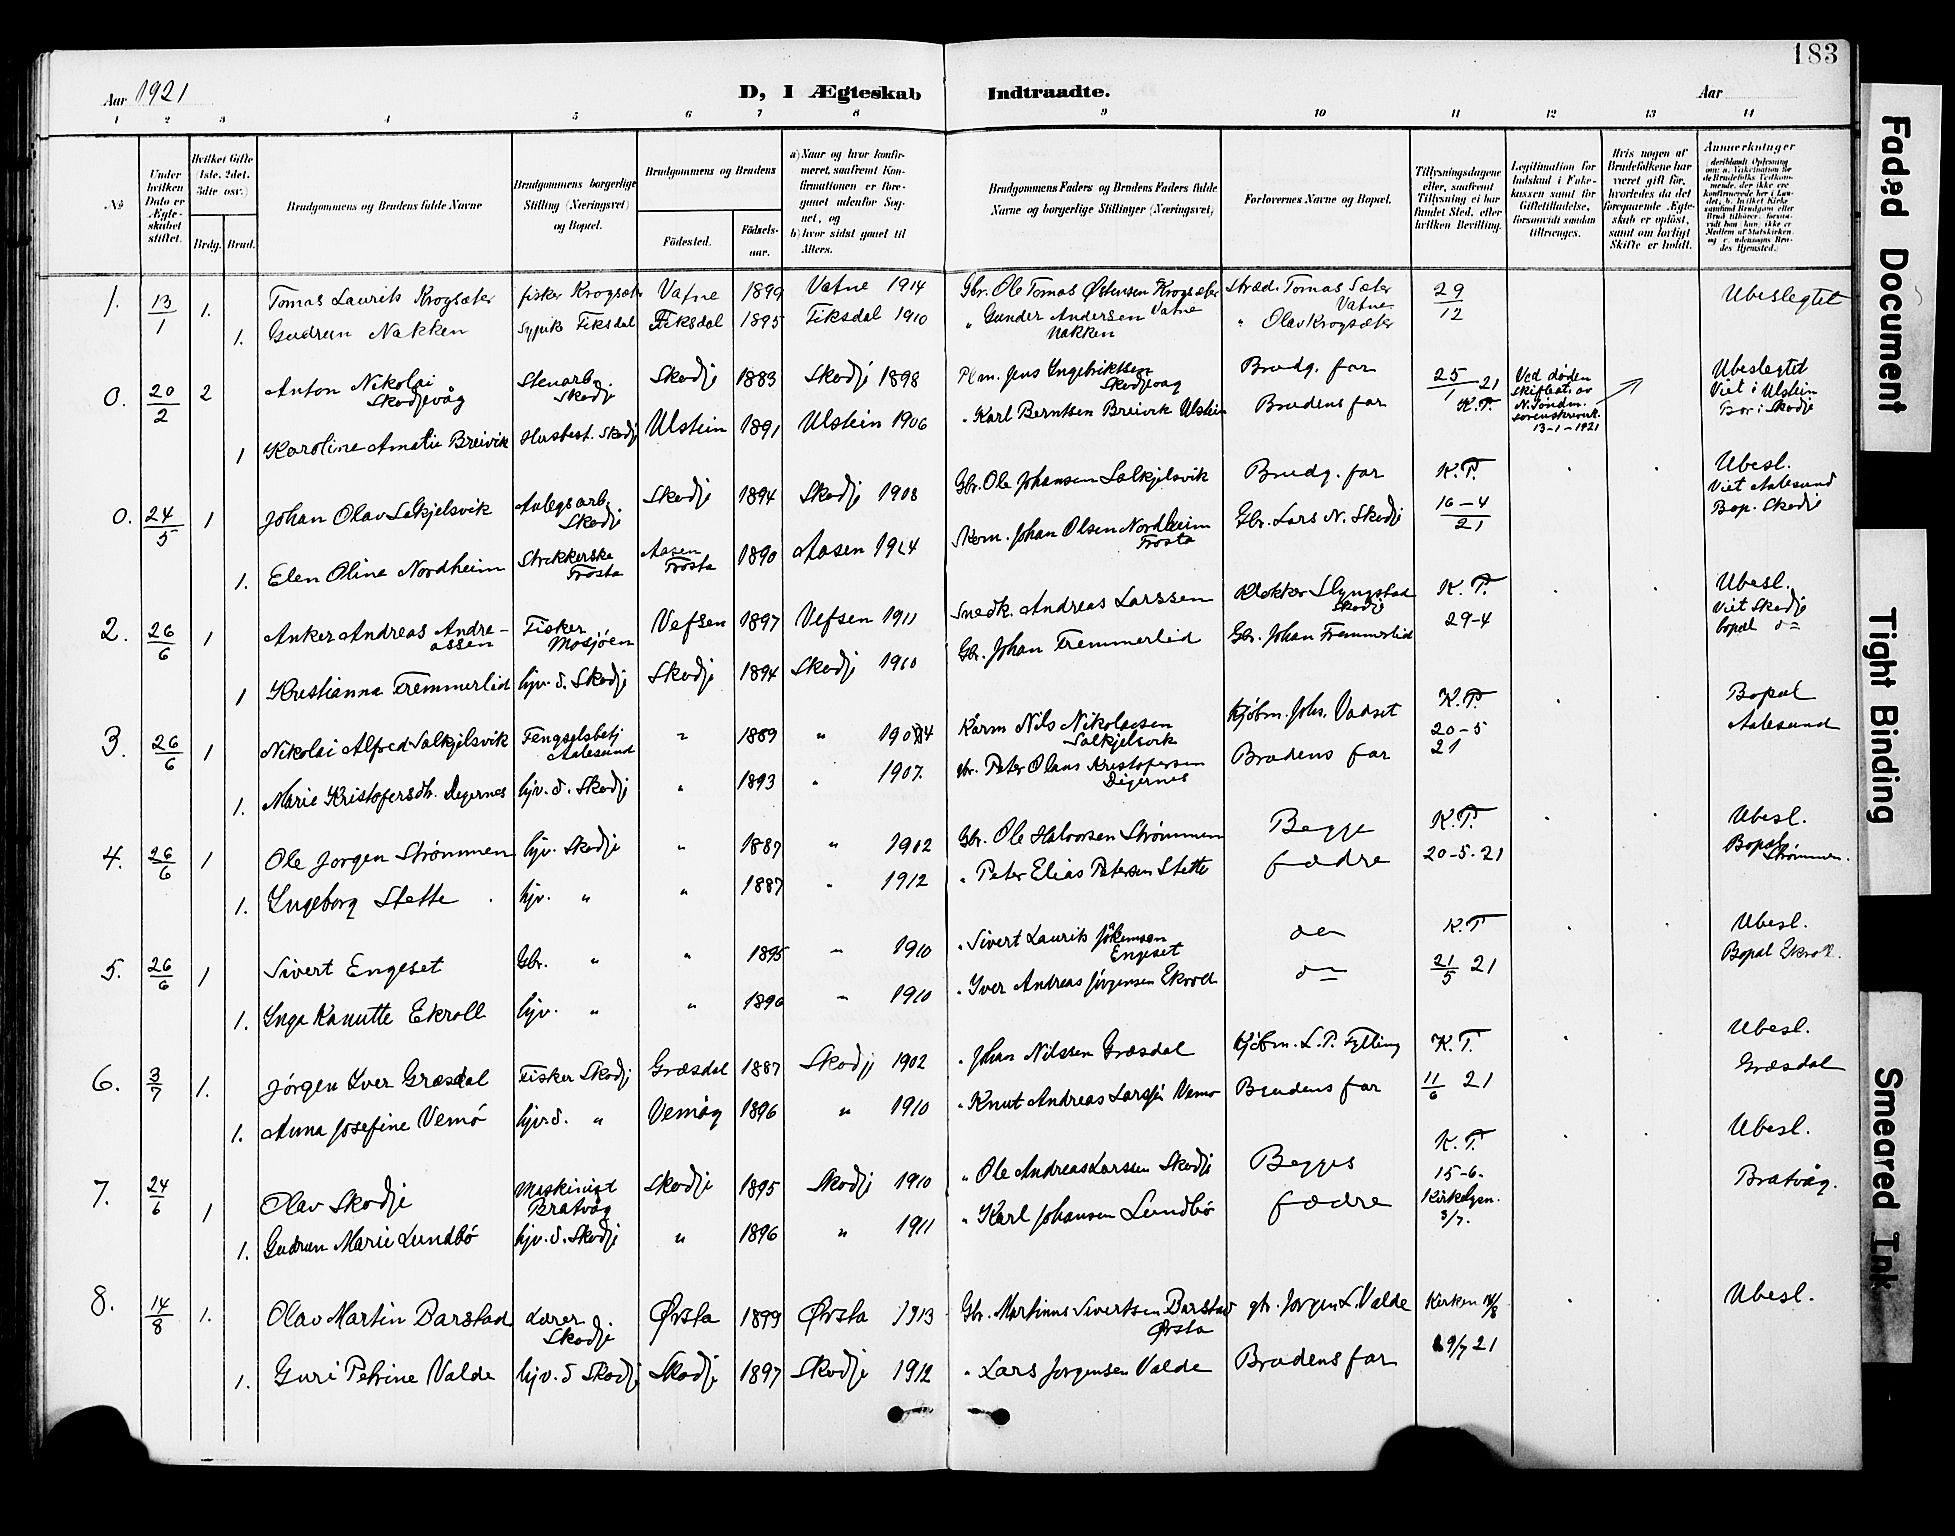 183
Aar 1921
D, I Ægteskab Indtraadte.
Aar
1 2 3 4 5 6 7 8 9 10 11 12 13 14
No
Under hvilken Dato er Ægteskabet stiftet.
Hvilket Gifte (1ste. 2det. 3die osv.)
Brdg. Brud.
Brudgommens og Brudens fulde Navne
Brudgommens borgerlige Stilling (Næringsvei) og Bopæl.
Brudgommens og Brudens
Fødested. Fødselsaar.
a) Naar og hvor konfirmeret, saafremt Konfirmationen er foregaaet udenfor Sognet, og
b) hvor sidst gaaet til Alters.
Brudgommens Faders og Brudens Faders fulde Navne og borgerlige Stillinger (Næringsvei)
Forlovernes Navne og Bopæl.
Tillysningsdagene eller, saafremt Tillysning ei har fundet Sted, efter hvilken Bevilling.
Legitimation for Indskud i Enkekassen samt for Giftetilladelse, forsaavidt saadan tiltrænges.
Hvis nogen af Brudefolkene har været gift før, hvorledes da det foregaaende Ægteskab er opløst, samt om lovligt Skifte er holdt.
Anmærkninger
1. 13/1 1. Tomas Laurits Krogsæter fisker Krogsæter Vatne 1899 Vatne 1914 Gbr. Ole Tomas Østensen Krogsæter Stræd. Tomas Sæter Vatne 29/12 Ubeslegtet
1. Gudrun Nakken Sypike Fiksdal Fiksdal 1895 Fiksdal 1910 " Gunder Andersen Vatne Nakken " Olav Krogsæter
0. 20/2 2 Anton Nikolai Skodjevåg Stenarb. Skodj. Skodje 1883 Skodje 1898 Pl.m. Jens Ingebriktsen Skodjevåg Brudg. far 25/1 21 K.T. Ved døden skifteat. av N. Söndm. sorenskrivnk. 13-1-1921 Ubeslegtet Viet i Ulstein Bor i Skodje
1 Karoline Amalie Breivik Husbest. Skodj Ulstein 1891 Ulstein 1906 " Karl Berntsen Breivik Ulstein Brudens far
0. 24/5 1 Johan Olav Salkjelsvik Anlegsarb. Skodje Skodje 1894 Skodje 1908 Gbr. Ole Johansen Salkjelsvik Brudg. far K.T. 16-4/21 Ubesl. Viet Aalesund Bop. Skodje
1. Elen Oline Nordheim Strikkerske Frosta Aasen Frosta 1890 Aasen 1904 Skom. Johan Olsen Nordheim Frosta Gbr. Lars N. Skodje
2. 26/6 1 Anker Andreas Andreassen Fisker Mosjöen Vefsen 1897 Vefsen 1911 Snedk. Andreas Larssen Klokker Slyngstad Skodje K.T. 29-4 Ubesl. Viet Skodje bopæl do
1 Kristianna Fremmerlid hjv. d. Skodje Skodje 1894 Skodje 1910 Gbr. Johan Fremmerlid Gbr. Johan Fremmerlid
3. 26/6 1 Nikolai Alfred Salkjelsvik Fengselsbetj Aalesund " 1889 " 1904 Kårm Nils Nikolaisen Salkjelsvik Kjöbm. Johs. Vadset K.T. 20-5 21 Bopæl Aalesund
1. Marie Kristofersdtr. Digernes hjv. d. Skodje " 1893 " 1907. gbr. Peter Olaus Kristofersen Digernes Brudens far
4. 26/6 1 Ole Jørgen Strömmen hjv. Skodje " 1887 " 1902 Gbr. Ole Halvorsen Strömmen Begge K.T. Ubesl.
1. Ingeborg Stette hjv. " " 1887 " 1912 " Peter Elias Petersen Stette fædre 20-5-21 Bopæl Strömmen.
5. 26/6 1 Sivert Engeset Gbr. " " 1895 " 1910 " Sivert Laurits Engeset do K.T Ubesl.
1. Inga Kanutte Ekroll hjv. " " 1896 " 1910 " Iver Andreas Jörgensen Ekroll do 21/5 21 Bopæl Ekroll.
6. 3/7 1. Jörgen Iver Græsdal Fisker Skodj Græsdal 1887 Skodje 1902 " Johan Nilssen Græsdal Kjöbm. L. P. Fylling K.T. Ubesl. Græsdal
1. Anna Josefine Vemö hjv. d. " Vemöy 1896 " 1910 " Knut Andreas Larssen Vemö Brudens far 11/6 21
7. 24/6 1 Olav Skodje Maskinist Bratvåg Skodje 1895 Skodje 1910 " Ole Andreas Larssen Skodje Begges K.T. 15-6. Ubesl. Bratvåg.
1. Gudrun Marie Lundbö hjv. d. Skodje " 1896 " 1911 " Karl Johansen Lundbö fædre Kirkelysn. 3/7.
8. 14/8 1. Olav Martin Barstad Lærer Skodje Ørsta 1899 Ørsta 1913 Gbr. Martinus Sivertsen Barstad Ørsta gbr. Jørgen L. Valde Kirken Ubesl.
1. Guri Petrine Valde hjv. d Skodje Skodje 1897 Skodje 1912 " Lars Jørgensen Valde Brudens far 9/7 21
Faded Document
Tight Binding
Smeared Ink